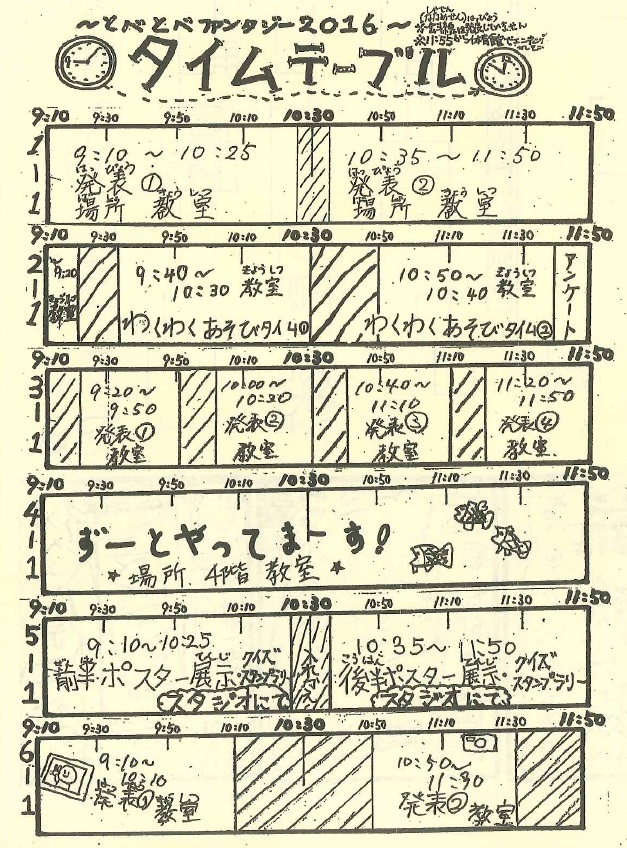 ～とべとべファンタジー2016～
タイムテーブル
9:10 9:30 9:50 10:10 10:30 10:50 11:10 11:30 11:50
1-1
9:10～10:25
はっぴょう
発表①
きょうしつ
場所 教室
10:35～11:50
はっぴょう
発表②
きょうしつ
場所 教室
9:10 9:30 9:50 10:10 10:30 10:50 11:10 11:30 11:50
2-1
～9:20
教室
9:40～
10:30 教室
きょうしつ
わくわくあそびタイム①
10:50～
10:40 教室
きょうしつ
わくわくあそびタイム②
アンケート
9:10 9:30 9:50 10:10 10:30 10:50 11:10 11:30 11:50
3-1
9:20～
9:50
発表①
教室
10:00～
10:30
発表②
教室
10:40～
11:10
発表③
教室
11:20～
11:50
発表④
教室
9:10 9:30 9:50 10:10 10:30 10:50 11:10 11:30 11:50
4-1
ずーとやってまーす!
★場所 4階 教室★
9:10 9:30 9:50 10:10 10:30 10:50 11:10 11:30 11:50
5-1
9:10～10:25
てんじ
前半ポスター展示
クイズ
スタンプラリー
スタジオにて
10:35～11:50
こうはん てんじ
後半ポスター展示
クイズ
スタンプラリー
スタジオにて
9:10 9:30 9:50 10:10 10:30 10:50 11:10 11:30 11:50
6-1
9:10～
10:10
発表① 教室
10:50～
11:30
発表② 教室